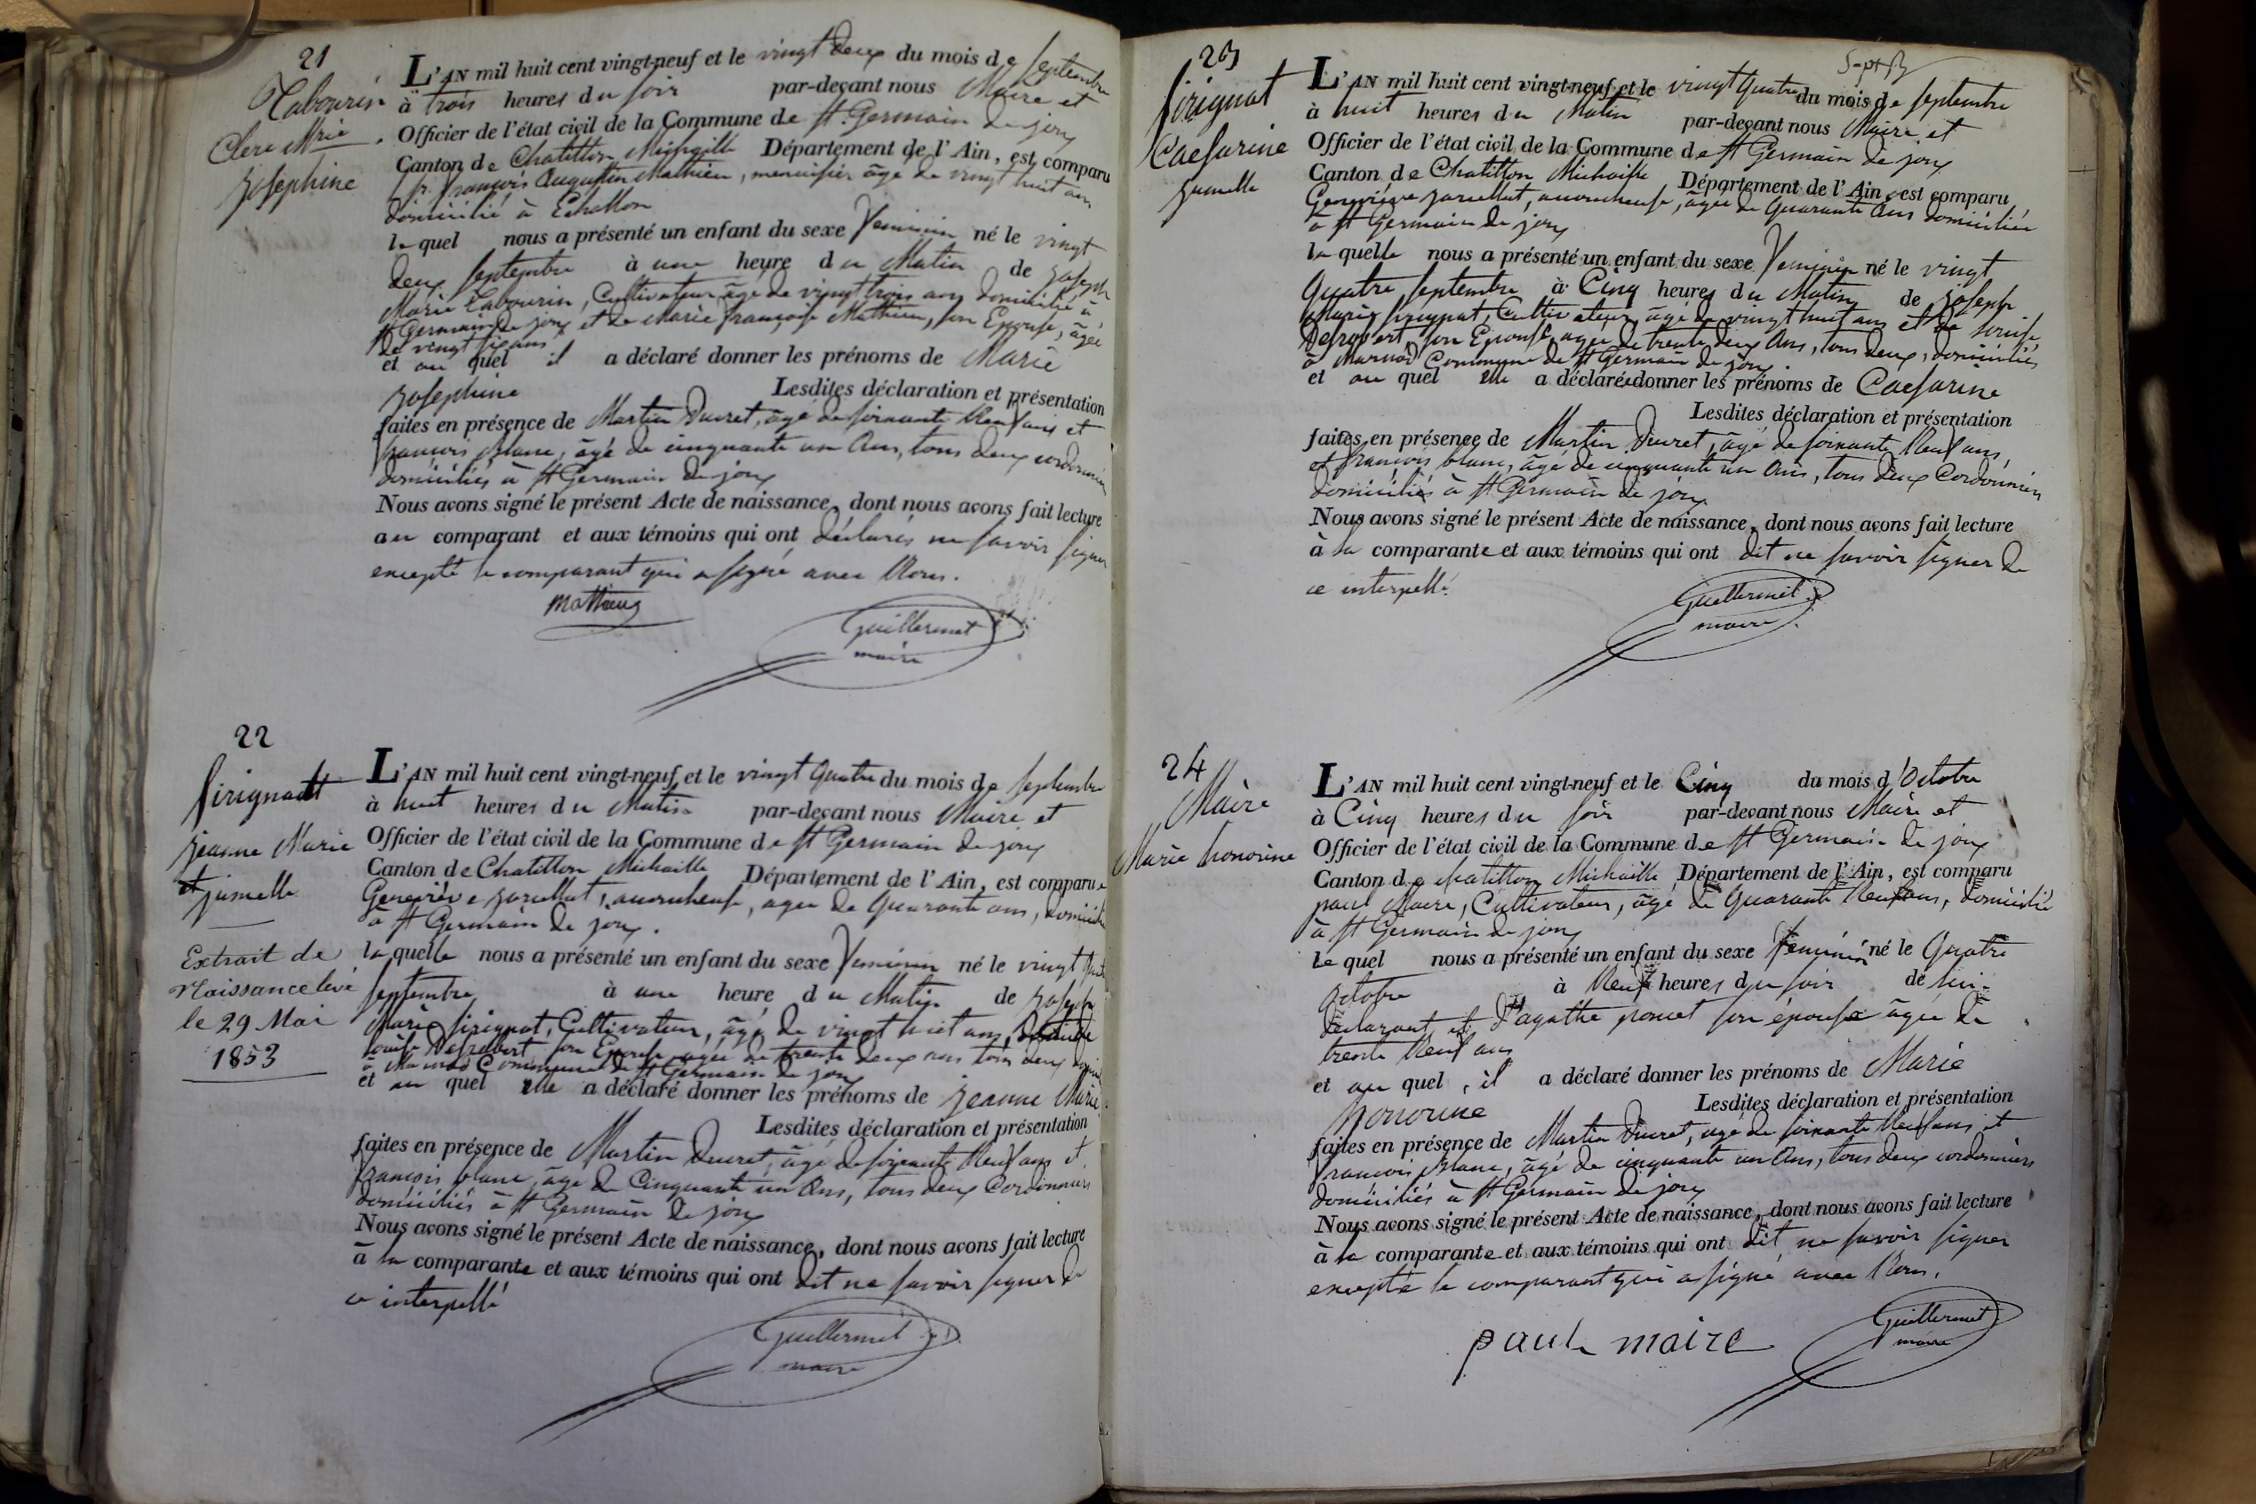 21
Tabourin
Clere Mrie
Josephine
L'AN mil huit cent vingt-neuf et le vingt deux du mois de Septembre
à trois heures du soir par-devant nous Maire et
Officier de l'état civil de la Commune de St. Germain de joux
Canton de Chatillon Michaille Département de l'Ain, est comparu
Sr. françois Augustin Mathieu, menuisier âgé de vingt huit ans
domicilié à Echallon
le quel nous a présenté un enfant du sexe Feminin né le vingt
deux septembre à une heure du Matin de Joseph
Marie Tabourin, Cultivateur âgé de vingt trois ans domicilié à
St Germain de joux et de Marie françoise Mathieu, son Epouse, âgée
de vingt six ans
et au quel il a déclaré donner les prénoms de Marie
Josephine Lesdites déclaration et présentation
faites en présence de Martin Ducret, âgé de soixante Neuf ans et
françois Blanc, âgé de cinquante un Ans, tous deux cordonniers
domiciliés à St Germain de joux
Nous avons signé le présent Acte de naissance, dont nous avons fait lecture
au comparant et aux témoins qui ont déclarés ne savoir signer
excepté le comparant qui a signé avec Nous.
Mathieu
Guillermet
maire
22
Sirignat
Jeanne Marie
jumelle
Extrait de
Naissance levé
le 29 Mai
1853
L'AN mil huit cent vingt-neuf et le vingt Quatre du mois de Septembre
à huit heures du Matin par-devant nous Maire et
Officier de l'état civil de la Commune de St Germain de joux
Canton de Chatillon Michaille Département de l'Ain, est comparue
Genevieve Jarcellat, accoucheuse, agée de Quarante ans, domiciliée
à St Germain de joux.
la quelle nous a présenté un enfant du sexe Feminin né le vingt Quatre
septembre à une heure du Matin de Joseph
Marie Sirignat, Cultivateur, âgé de vingt huit ans,
Louise Desrobert son Epouse agée de trente deux ans tous deux
à Marnod Commune de St Germain de joux
et au quel elle a déclaré donner les prénoms de Jeanne Marie
Lesdites déclaration et présentation
faites en présence de Martin Ducret, âgé de soixante Neuf ans et
françois blanc, âgé de Cinquante un Ans, tous deux Cordonniers
domiciliés à St Germain de joux
Nous avons signé le présent Acte de naissance, dont nous avons fait lecture
à la comparante et aux témoins qui ont dit ne savoir signer de
ce interpellé
Guillermet
maire
23
Sirignat
Caesarine
jumelle
L'AN mil huit cent vingt-neuf et le vingt Quatre du mois de septembre
à huit heures du Matin par-devant nous Maire et
Officier de l'état civil de la Commune de St Germain de joux
Canton de Chatillon Michaille Département de l'Ain, est comparu
Genevieve Jarcellat, accoucheuse, âgée de Quarante Ans domiciliée
à St Germain de joux
la quelle nous a présenté un enfant du sexe Feminin né le vingt
Quatre septembre à Cinq heures du Matin de Joseph
Marie Sirignat, Cultivateur, âgé de vingt huit ans et de Louise
Desrobert son Epouse, agée de trente deux Ans, tous deux, domiciliés
à Marnod Commune de St Germain de joux.
et au quel elle a déclaré donner les prénoms de Caesarine
Lesdites déclaration et présentation
faites en présence de Martin Ducret, âgé de soixante Neuf ans,
et françois blanc, âgé de cinquante un Ans, tous deux Cordonniers
domiciliés à St Germain de joux
Nous avons signé le présent Acte de naissance, dont nous avons fait lecture
à la comparante et aux témoins qui ont dit ne savoir signer de
ce interpellé.
Guillermet
maire
24
Maire
Marie honorine
L'AN mil huit cent vingt-neuf et le Cinq du mois d'Octobre
à Cinq heures du soir par-devant nous Maire et
Officier de l'état civil de la Commune de St Germain de joux
Canton de Chatillon Michaille Département de l'Ain, est comparu
paul Maire, Cultivateur, âgé de Quarante Neuf ans, domicilié
à St Germain de joux
le quel nous a présenté un enfant du sexe feminin né le Quatre
Octobre à Neuf heures du soir de lui-
déclarant et d'agathe poncet son épouse âgée de
trente Neuf ans
et au quel, il a déclaré donner les prénoms de Marie
honorine Lesdites déclaration et présentation
faites en présence de Martin Ducret, agé de soixante Neuf ans et
françois Blanc, âgé de cinquante un Ans, tous deux cordonniers
domiciliés à St Germain de joux
Nous avons signé le présent Acte de naissance, dont nous avons fait lecture
à la comparante et aux témoins qui ont dit ne savoir signer
excepté le comparant qui a signé avec Nous.
paul maire
Guillermet
maire